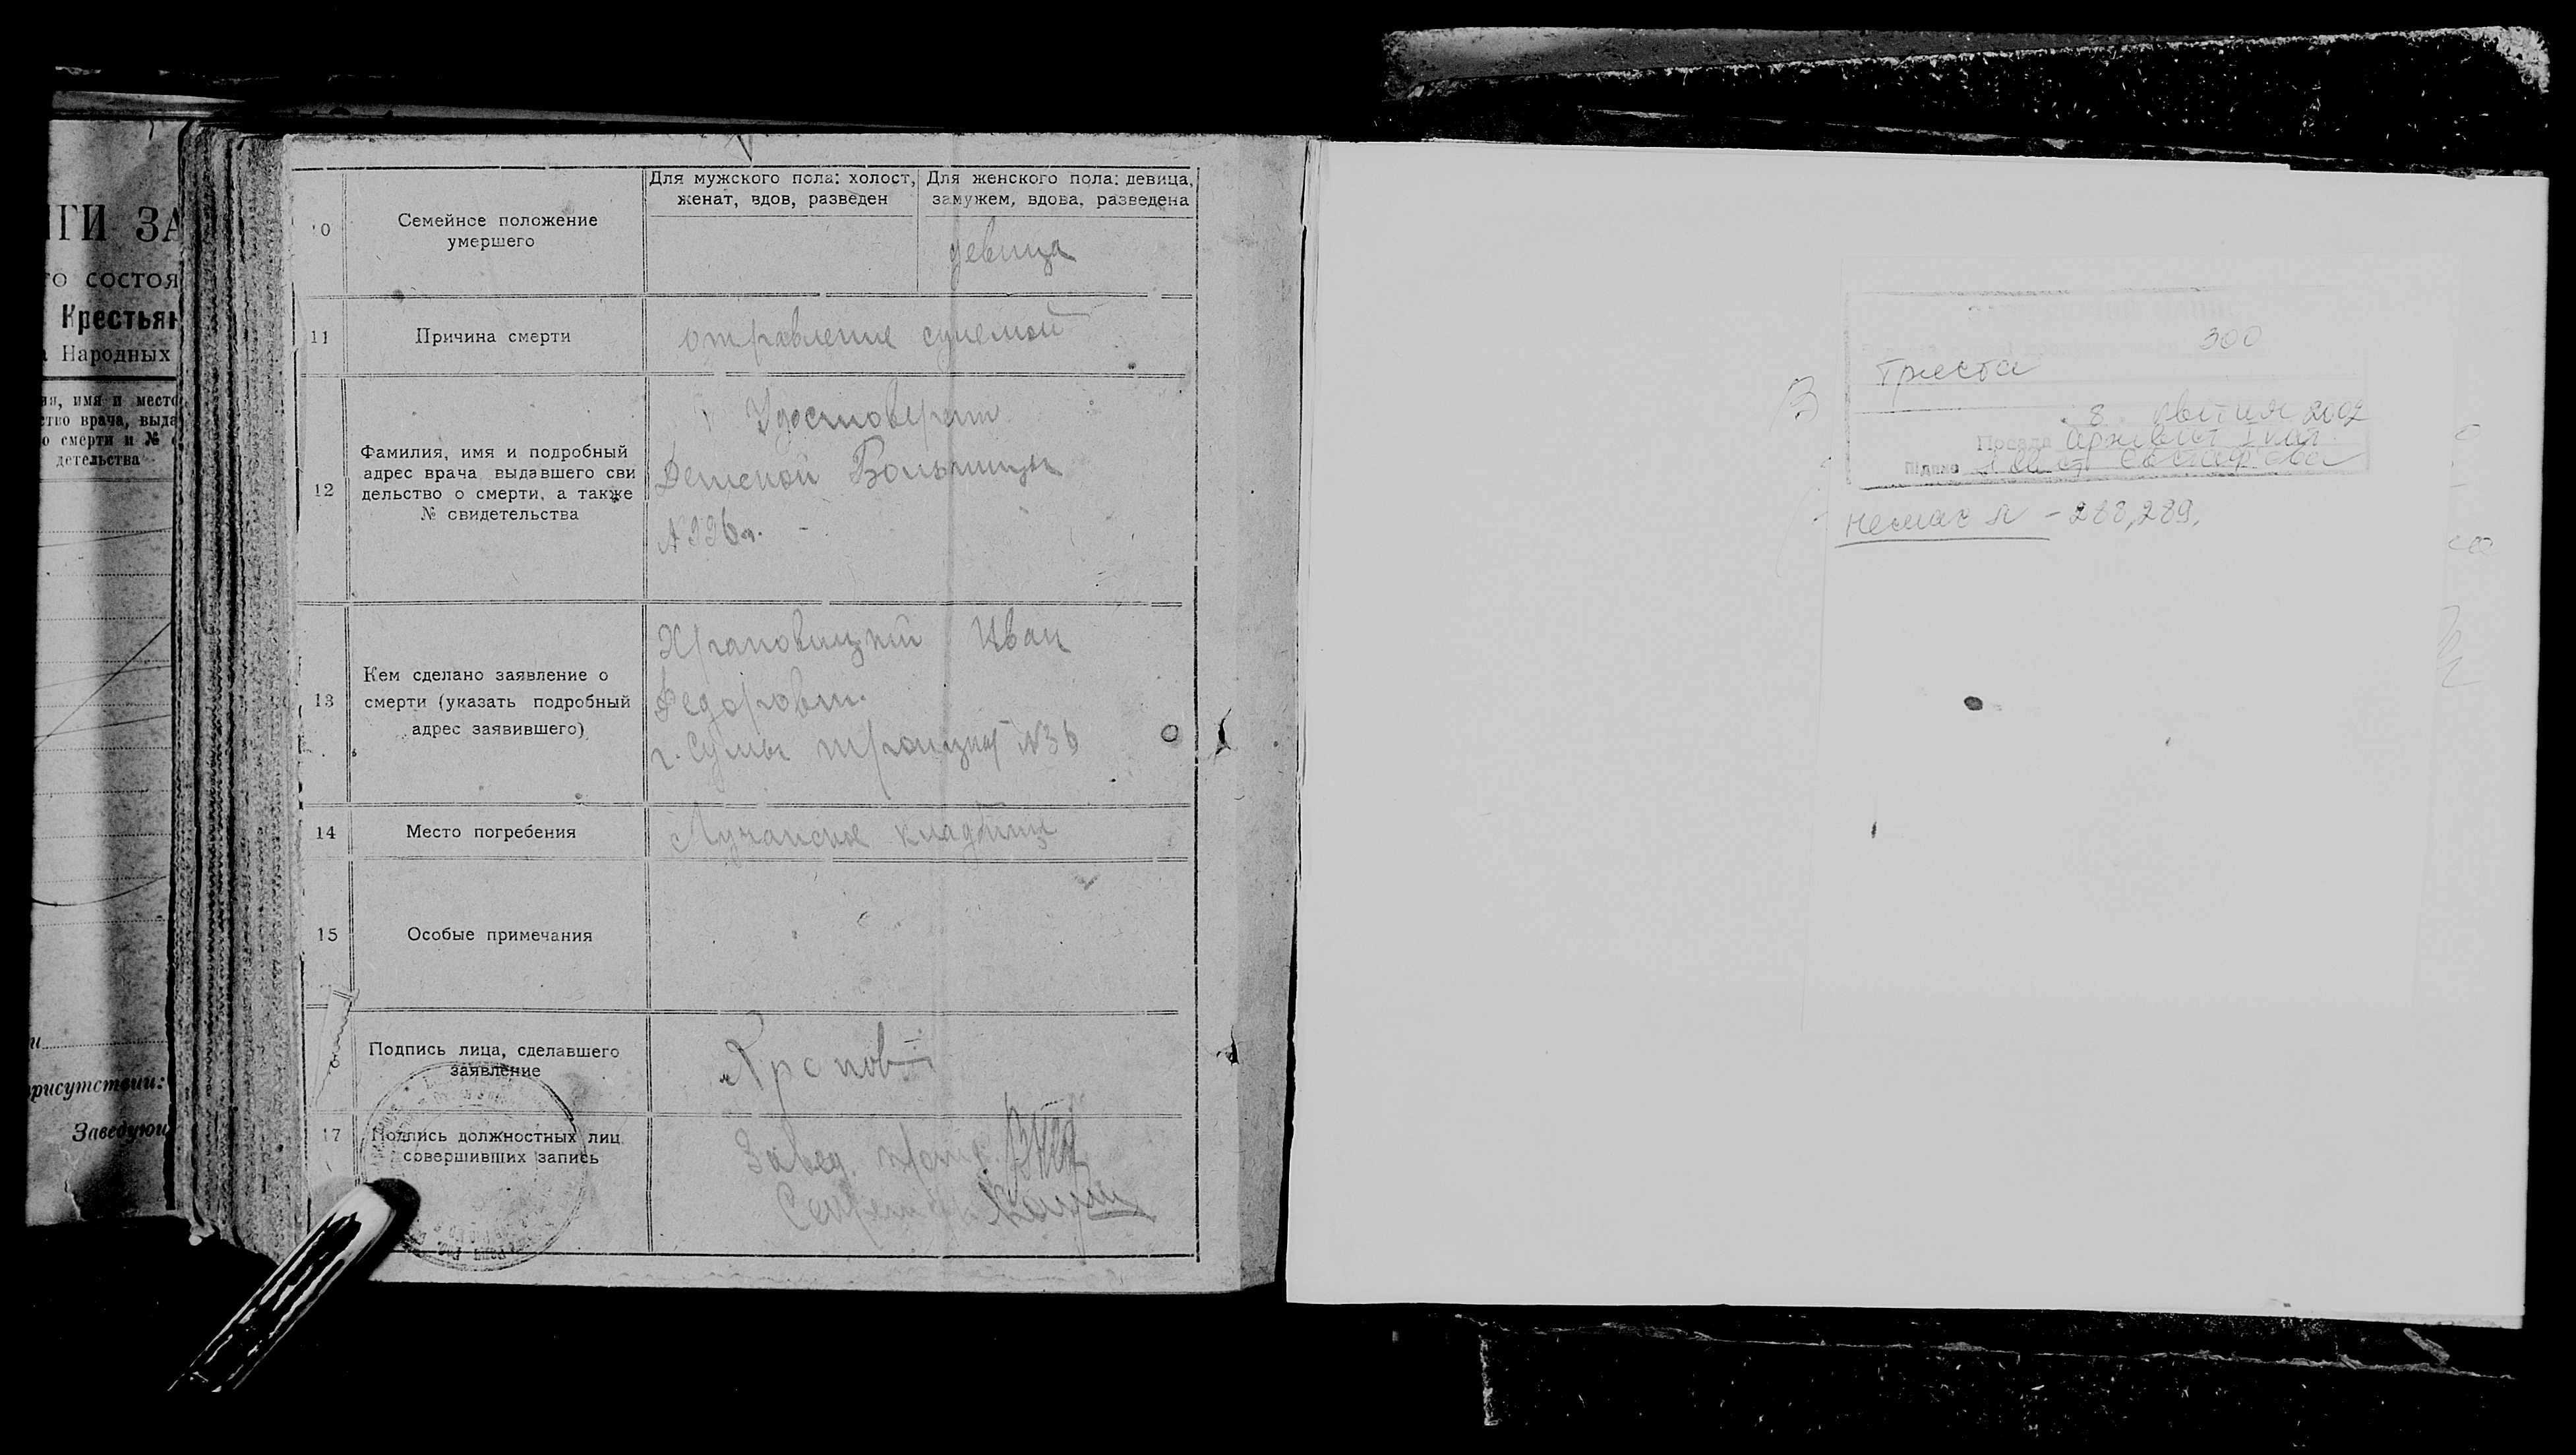 ГИ ЗА
го состоя
Крестьян
Народных
ия, имя и место
ство врача, выда
о смерти и №
детельства
присутствии:
Заведующ
10
Семейное положение
умершего
Для мужского пола: холост,
женат, вдов, разведен
Для женского пола: девица,
замужем, вдова, разведена
девица
11
Причина смерти
отравление сулемой
12
Фамилия, имя и подробный
адрес врача выдавшего сви
дельство о смерти, а также
№ свидетельства
Детской Больницы
13
Кем сделано заявление о
смерти (указать подробный
адрес заявившего)
Храповицкий Иван
Федорович
г. Сумы Троицкая №36
14
Место погребения
Лучанское кладбище
15
Особые примечания
Подпись лица, сделавшего
заявление
17
Подпись должностных лиц
совершивших запись
Завед.
Секретарь
300
триста
8 квітня 2002
Посада архивист I кат.
Підпис
немає л - 288, 289,